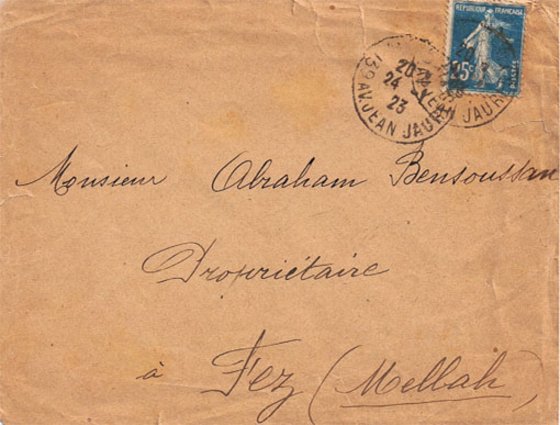 RÉPUBLIQUE FRANÇAISE
25c
POSTES
20
24
23
139 AV. JEAN JAURÈS
JEAN JAUR
Monsieur Abraham Bensoussan
Propriétaire
à Fez (Mellah)